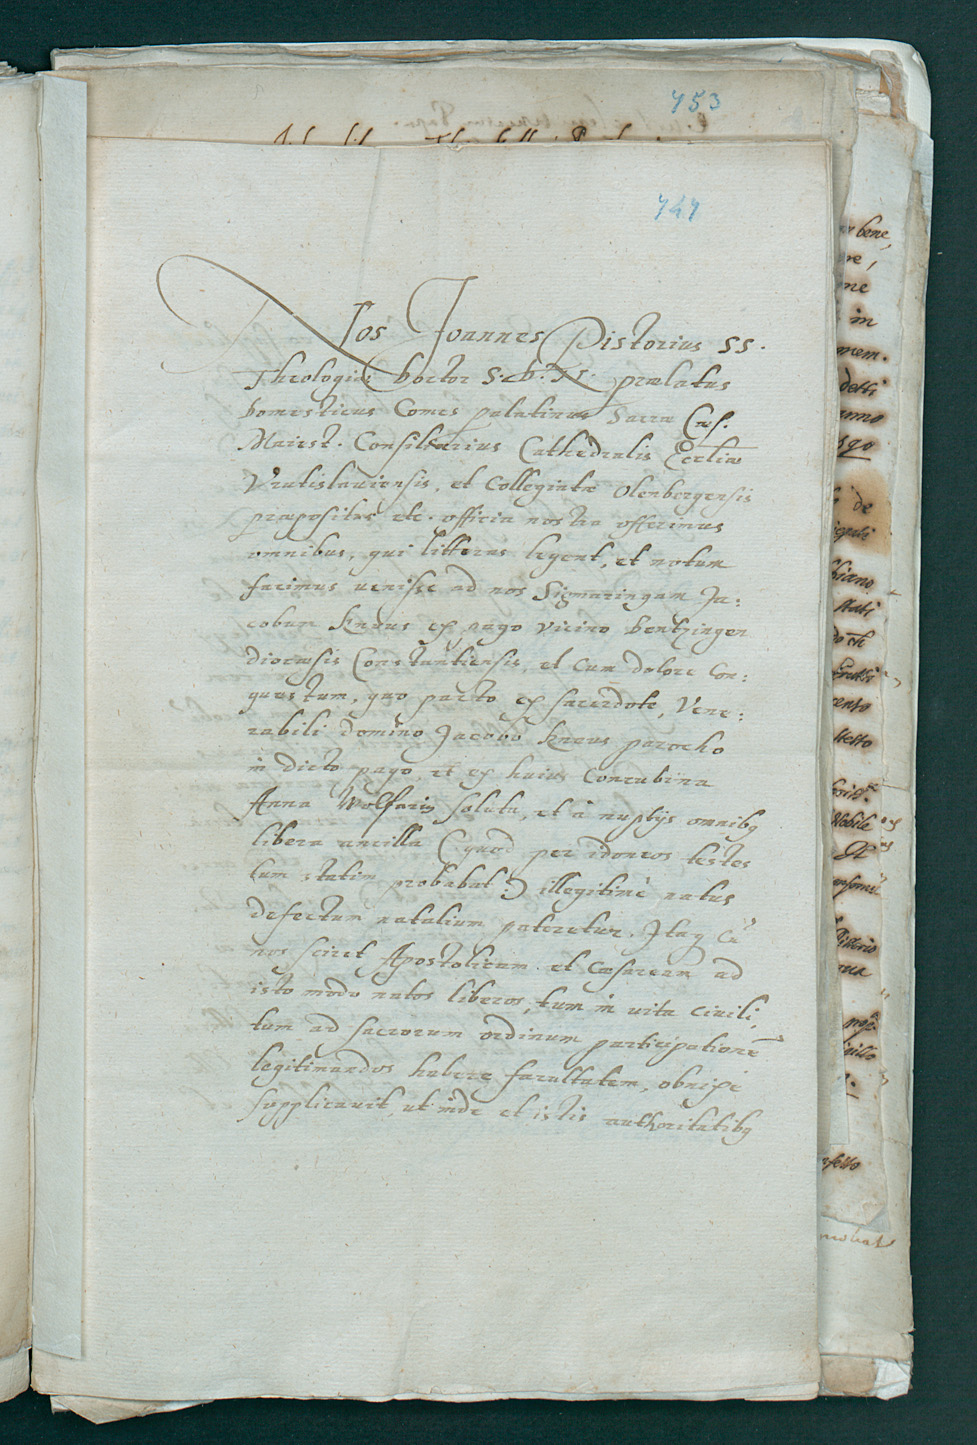 753
747
Nos Joannes Pistorius SS.
Theologiæ Doctor S. D. N. prælatus
domesticus Comes palatinus Sacræ Cæs.
Maiest. Consiliarius Cathedralis Eccliæ
Vratislauiensis, et Collegiatæ Olenbergensis
præpositus etc. officia nostra offerimus
omnibus, qui litteras legent, et notum
facimus uenisse ad nos Sigmaringam Ja:
cobum Knaus ex pago vicino Bentzingen
diocæsis Constantiensis, et cum dolore con:
questum, quo pacto ex sacerdote, Vene:
rabili domino Jacobo Knaus parocho
in dicto pago, et ex huius Concubina
Anna Wolfarin soluta, et à nuptijs omnibq
libera ancilla (quod per idoneos testes
tum statim probabat:) illegitimè natus
defectum natalium pateretur. Itaq cū
nos sciret Apostolicam et Cæsaream ad
isto modo natos liberos, tum in uita ciuili,
tum ad sacrorum ordinum participationē
legitimandos habere facultatem, obnixè
supplicauit, ut inde et istis authoritatibq
bene,
in
de
Nobile